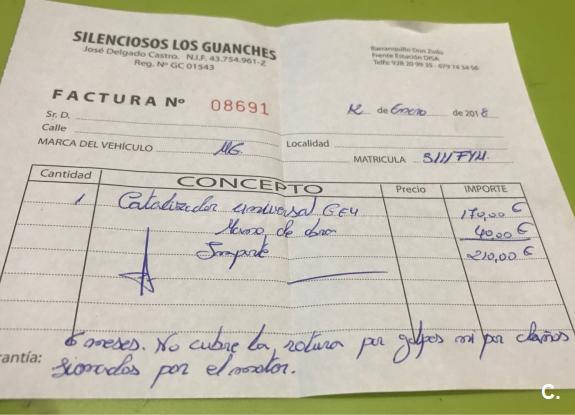 SILENCIOSOS LOS GUANCHES
José Delgado Castro. N.I.F. 43.754.961-Z
Reg. Nº GC 01543
Barranquillo Don Zoilo
Frente Estación DISA
Telfs: 928 20 99 35 - 679 14 54 56
FACTURA Nº 08691
12 de Enero de 2018
Sr. D.
Calle
Localidad
MARCA DEL VEHÍCULO MG.
MATRICULA
Cantidad CONCEPTO Precio IMPORTE
1 Catalizador universal GE4 170,00 €
Mano de obra 40,00 €
Importe 210,00 €
antía: 6 meses. No cubre la rotura por golpes ni por daños
sionados por el motor.
C.